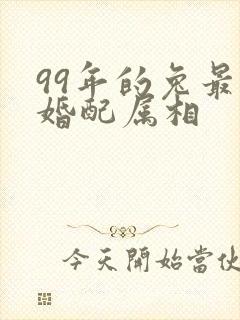 99年的兔最
婚配属相
今天開始當伙